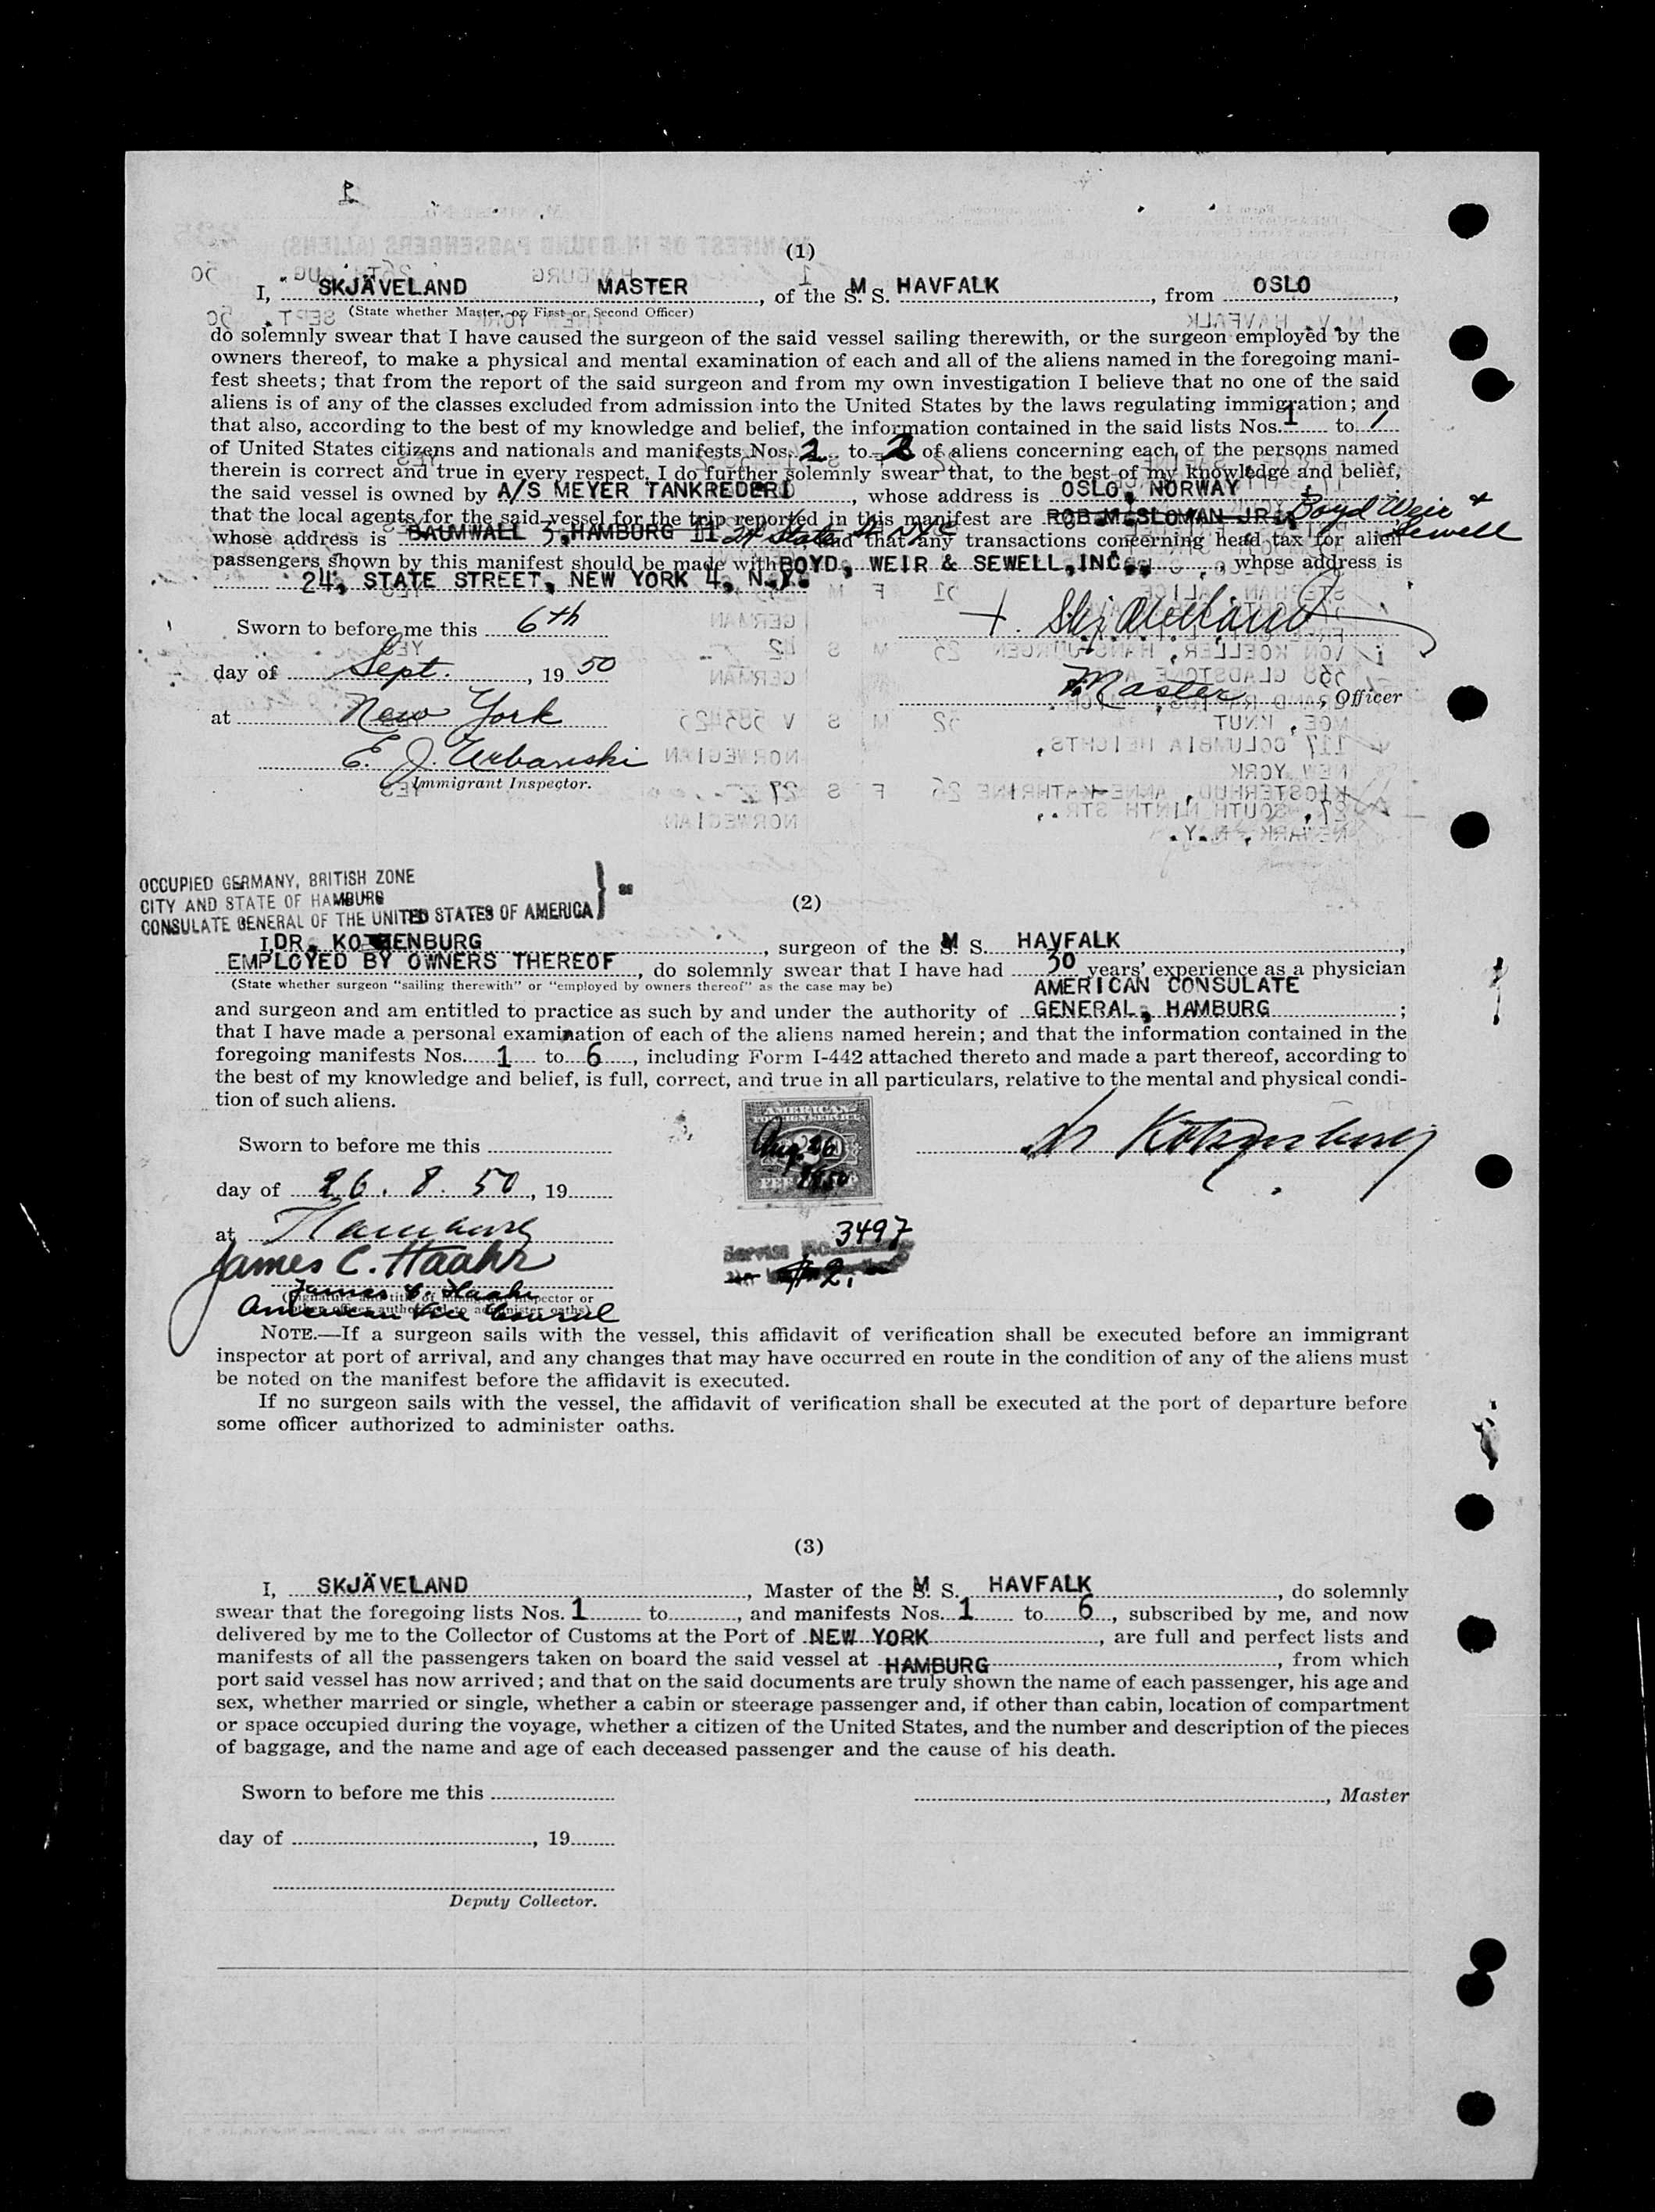 1
(1)
I, SKJÄVELAND MASTER, of the M S. HAVFALK, from OSLO,
(State whether Master, or First or Second Officer)
do solemnly swear that I have caused the surgeon of the said vessel sailing therewith, or the surgeon employed by the
owners thereof, to make a physical and mental examination of each and all of the aliens named in the foregoing mani-
fest sheets; that from the report of the said surgeon and from my own investigation I believe that no one of the said
aliens is of any of the classes excluded from admission into the United States by the laws regulating immigration; and
that also, according to the best of my knowledge and belief, the information contained in the said lists Nos. 1 to 1
of United States citizens and nationals and manifests Nos. 2 to 2 of aliens concerning each of the persons named
therein is correct and true in every respect. I do further solemnly swear that, to the best of my knowledge and belief,
the said vessel is owned by A/S MEYER TANKREDERI, whose address is OSLO, NORWAY
that the local agents for the said vessel for the trip reported in this manifest are ROB.M.SLOMAN JR. Boyd Weir & Sewell
whose address is BAUMWALL 3, HAMBURG 11 24 State St NYC and that any transactions concerning head tax for alien
passengers shown by this manifest should be made with BOYD, WEIR & SEWELL, INC., whose address is
24, STATE STREET, NEW YORK 4, N.Y.
Sworn to before me this 6th
+. Skjäveland
day of Sept., 19 50
Master, Officer
at New York
E. J. Urbanski
Immigrant Inspector.
OCCUPIED GERMANY, BRITISH ZONE
CITY AND STATE OF HAMBURG
CONSULATE GENERAL OF THE UNITED STATES OF AMERICA
(2)
I, DR. KOTZENBURG, surgeon of the M S. HAVFALK,
EMPLOYED BY OWNERS THEREOF, do solemnly swear that I have had 30 years' experience as a physician
(State whether surgeon "sailing therewith" or "employed by owners thereof" as the case may be)
AMERICAN CONSULATE
and surgeon and am entitled to practice as such by and under the authority of GENERAL, HAMBURG;
that I have made a personal examination of each of the aliens named herein; and that the information contained in the
foregoing manifests Nos. 1 to 6, including Form I-442 attached thereto and made a part thereof, according to
the best of my knowledge and belief, is full, correct, and true in all particulars, relative to the mental and physical condi-
tion of such aliens.
AMERICAN
FOREIGN SERVICE
Aug. 26
1950
FEE STAMP
Sworn to before me this
Dr Kotzenburg
day of 26. 8. 50, 19
at Hamburg
Service No. 3497
$2.
James C. Haahr
James C. Haahr
(Signature and title of immigrant inspector or
other officer authorized to administer oaths)
American Vice Consul
NOTE.—If a surgeon sails with the vessel, this affidavit of verification shall be executed before an immigrant
inspector at port of arrival, and any changes that may have occurred en route in the condition of any of the aliens must
be noted on the manifest before the affidavit is executed.
If no surgeon sails with the vessel, the affidavit of verification shall be executed at the port of departure before
some officer authorized to administer oaths.
(3)
I, SKJÄVELAND, Master of the M S. HAVFALK, do solemnly
swear that the foregoing lists Nos. 1 to, and manifests Nos. 1 to 6, subscribed by me, and now
delivered by me to the Collector of Customs at the Port of NEW YORK, are full and perfect lists and
manifests of all the passengers taken on board the said vessel at HAMBURG, from which
port said vessel has now arrived; and that on the said documents are truly shown the name of each passenger, his age and
sex, whether married or single, whether a cabin or steerage passenger and, if other than cabin, location of compartment
or space occupied during the voyage, whether a citizen of the United States, and the number and description of the pieces
of baggage, and the name and age of each deceased passenger and the cause of his death.
Sworn to before me this
, Master
day of, 19
Deputy Collector.